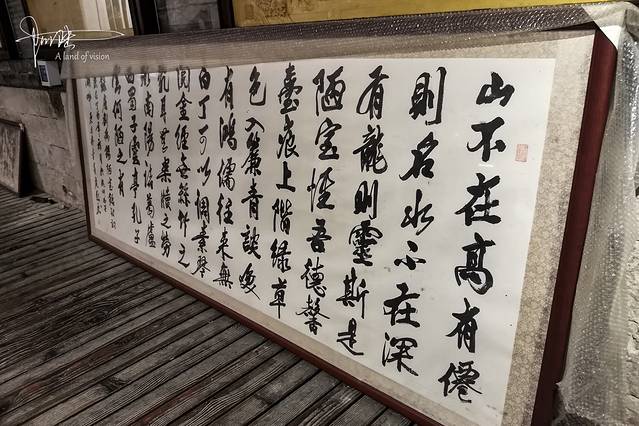 山不在高有僊
則名水不在深
有龍則靈斯是
陋室惟吾德馨
臺痕上階綠草
色入簾青談笑
有鴻儒往來無
白丁可以調素琴
閱金經無絲竹之
亂耳無案牘之勞
形南陽諸葛廬
西蜀子雲亭孔子
云何陋之有
A land of vision